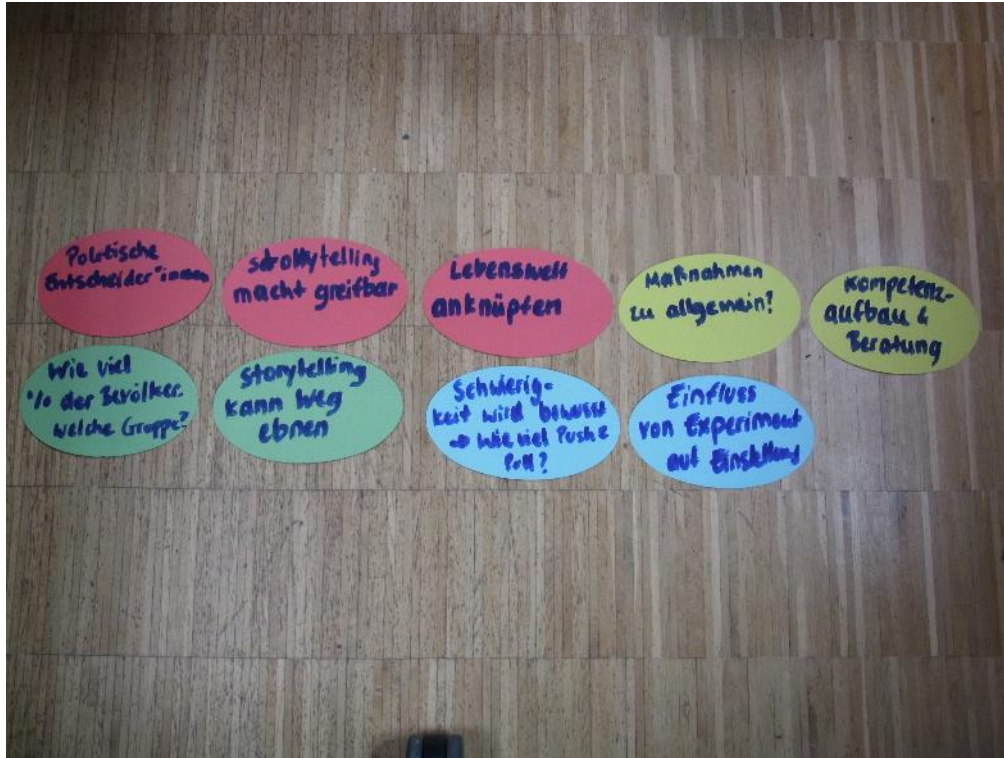 Politische
Entscheider*innen
storytelling
macht greifbar
Lebenswelt
anknüpfen
Maßnahmen
zu allgemein?
Kompetenz-
aufbau &
Beratung
Wie viel
% der Bevölker.
welche Gruppe?
Storytelling
kann Weg
ebnen
Schwierig-
keit wird bewusst
→ Wie viel Push &
Pull?
Einfluss
von Experiment
auf Einstellung